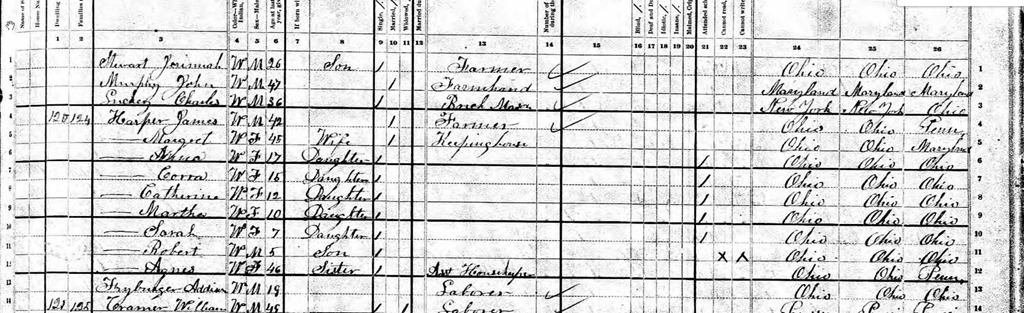 1 2 3 4 5 6 7 8 9 10 11 12 13 14 15 16 17 18 19 20 21 22 23 24 25 26
1 Stewart Jerimiah W M 26 Son / Farmer Ohio Ohio Ohio 1
2 Murphy John W M 47 / Farmhand Maryland Maryland Maryland 2
3 Charles W M 36 / Brick Mason New York New York Ohio 3
4 120 124 Harper James W M 42 / Farmer Ohio Ohio Penn 4
5 —— Margret W F 45 Wife / Keepinghouse Ohio Ohio Maryland 5
6 —— Anna W F 17 Daughter / / Ohio Ohio Ohio 6
7 —— Corra W F 15 Daughter / / Ohio Ohio Ohio 7
8 —— Catherine W F 12 Daughter / / Ohio Ohio Ohio 8
9 —— Martha W F 10 Daughter / / Ohio Ohio Ohio 9
10 —— Sarah W F 7 Daughter / / Ohio Ohio Ohio 10
11 —— Robert W M 5 Son / X X Ohio Ohio Ohio 11
12 —— Agnes W F 46 Sister / Housekeeper Ohio Ohio Penn 12
13 W M 19 Laborer Ohio Ohio Ohio 13
14 121 125 Cramer William W M 45 / / Laborer 14